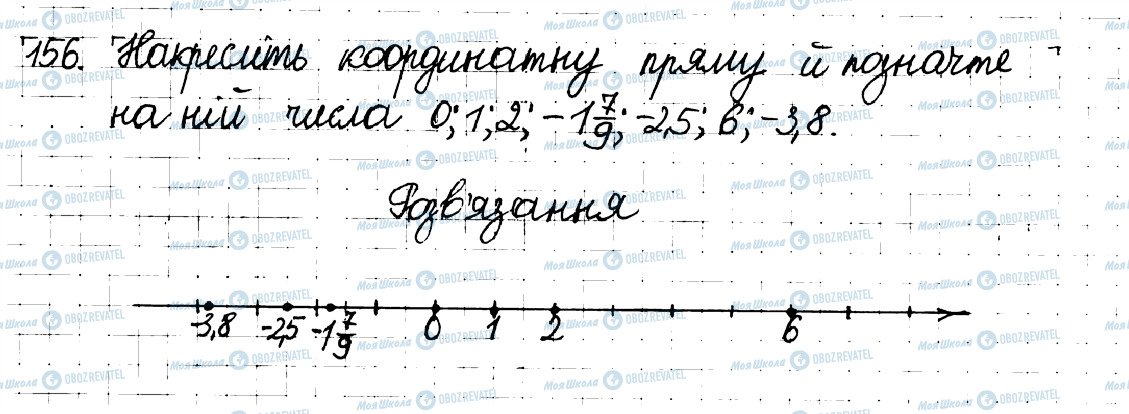 156. Накресліть координатну пряму й позначте
на ній числа 0; 1; 2; -1 7/9; -2,5; 6; -3,8.
Розв'язання
-3,8 -2,5 -1 7/9 0 1 2 6